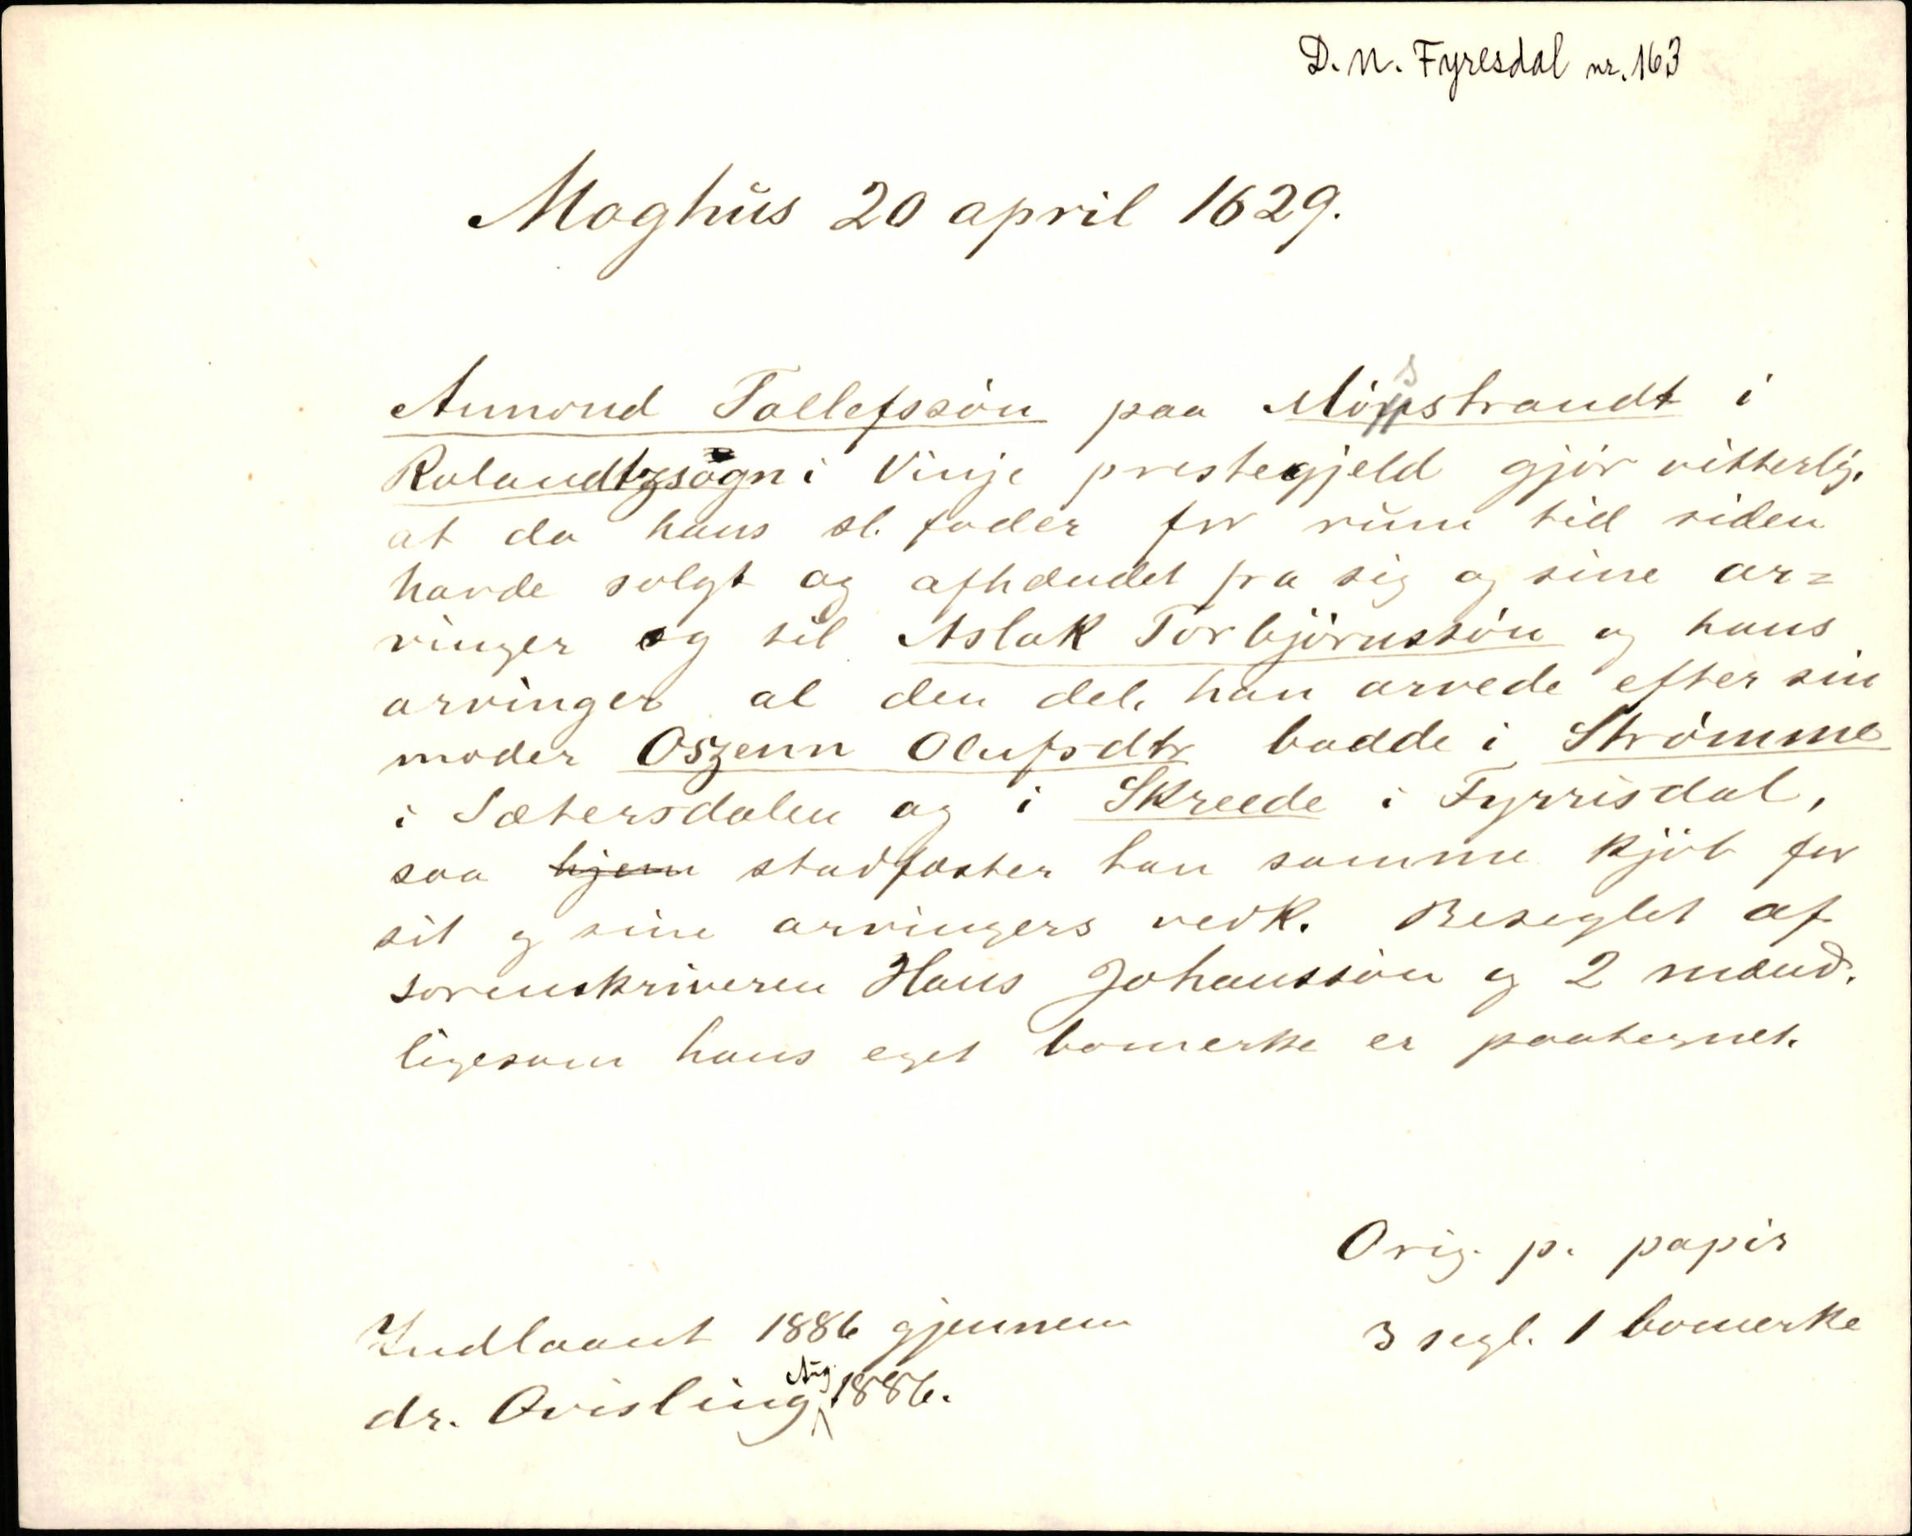 D. N. Fyresdal nr. 163
Moghŭs 20 april 1629.
Aumond Tallefssön paa Mösstrandt i
Rolandtzsogn i Vinje prestegjeld gjör vitterlig,
at da hans sl. fader for rŭm tid siden
havde solgt og afhændet fra sig og sine ar=
vinger og til Aslak Torbjörnssön og hans
arvinger al den del, han arvede efter sin
moder Oszenn Olufsdtr badde i Strömme
i Sætersdalen og i Skreede i Fyrrisdal,
saa hjem stadfæster han samme kjöb for
sit og sine arvingers vedk. Beseglet af
sorenskriveren Hans Johanssön og 2 mænd.
ligesom hans eget bomerke er paategnet.
Orig. p. papir
3 segl. 1 bomerke
Indlaant 1886 gjennem
dr. Qvisling Aŭg. 1886.